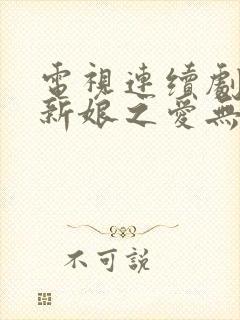 電視連續劇
新娘之愛無
不可説